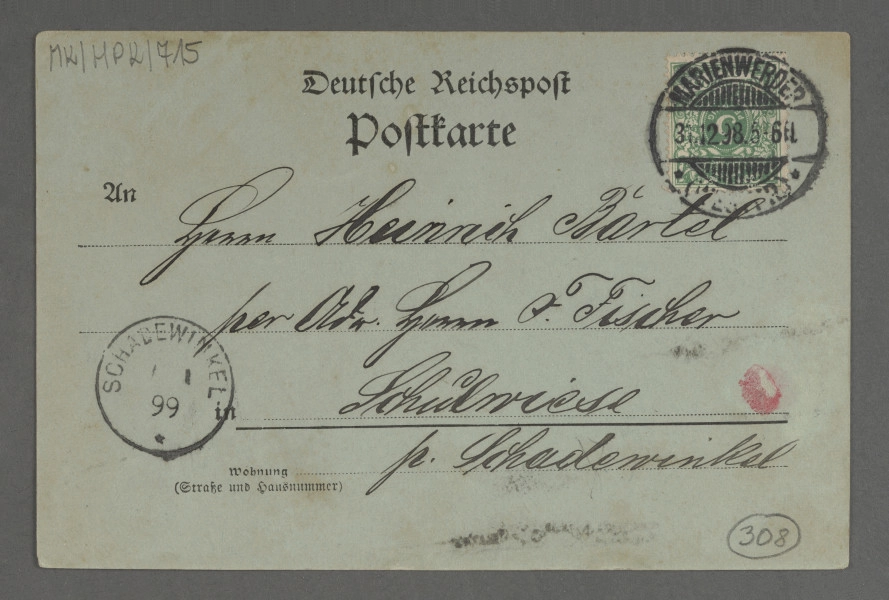 MK/MPK/715
Deutsche Reichspost
Postkarte
MARIENWERDER
31.12.98. 5-6N.
* (WESTPR.) *
An
Herrn Heinrich Bartel
per Adr. Herrn F. Fischer
SCHADEWINKEL
1 1
99
*
in Schulwiese
p. Schadewinkel
Wohnung
(Straße und Hausnummer)
308